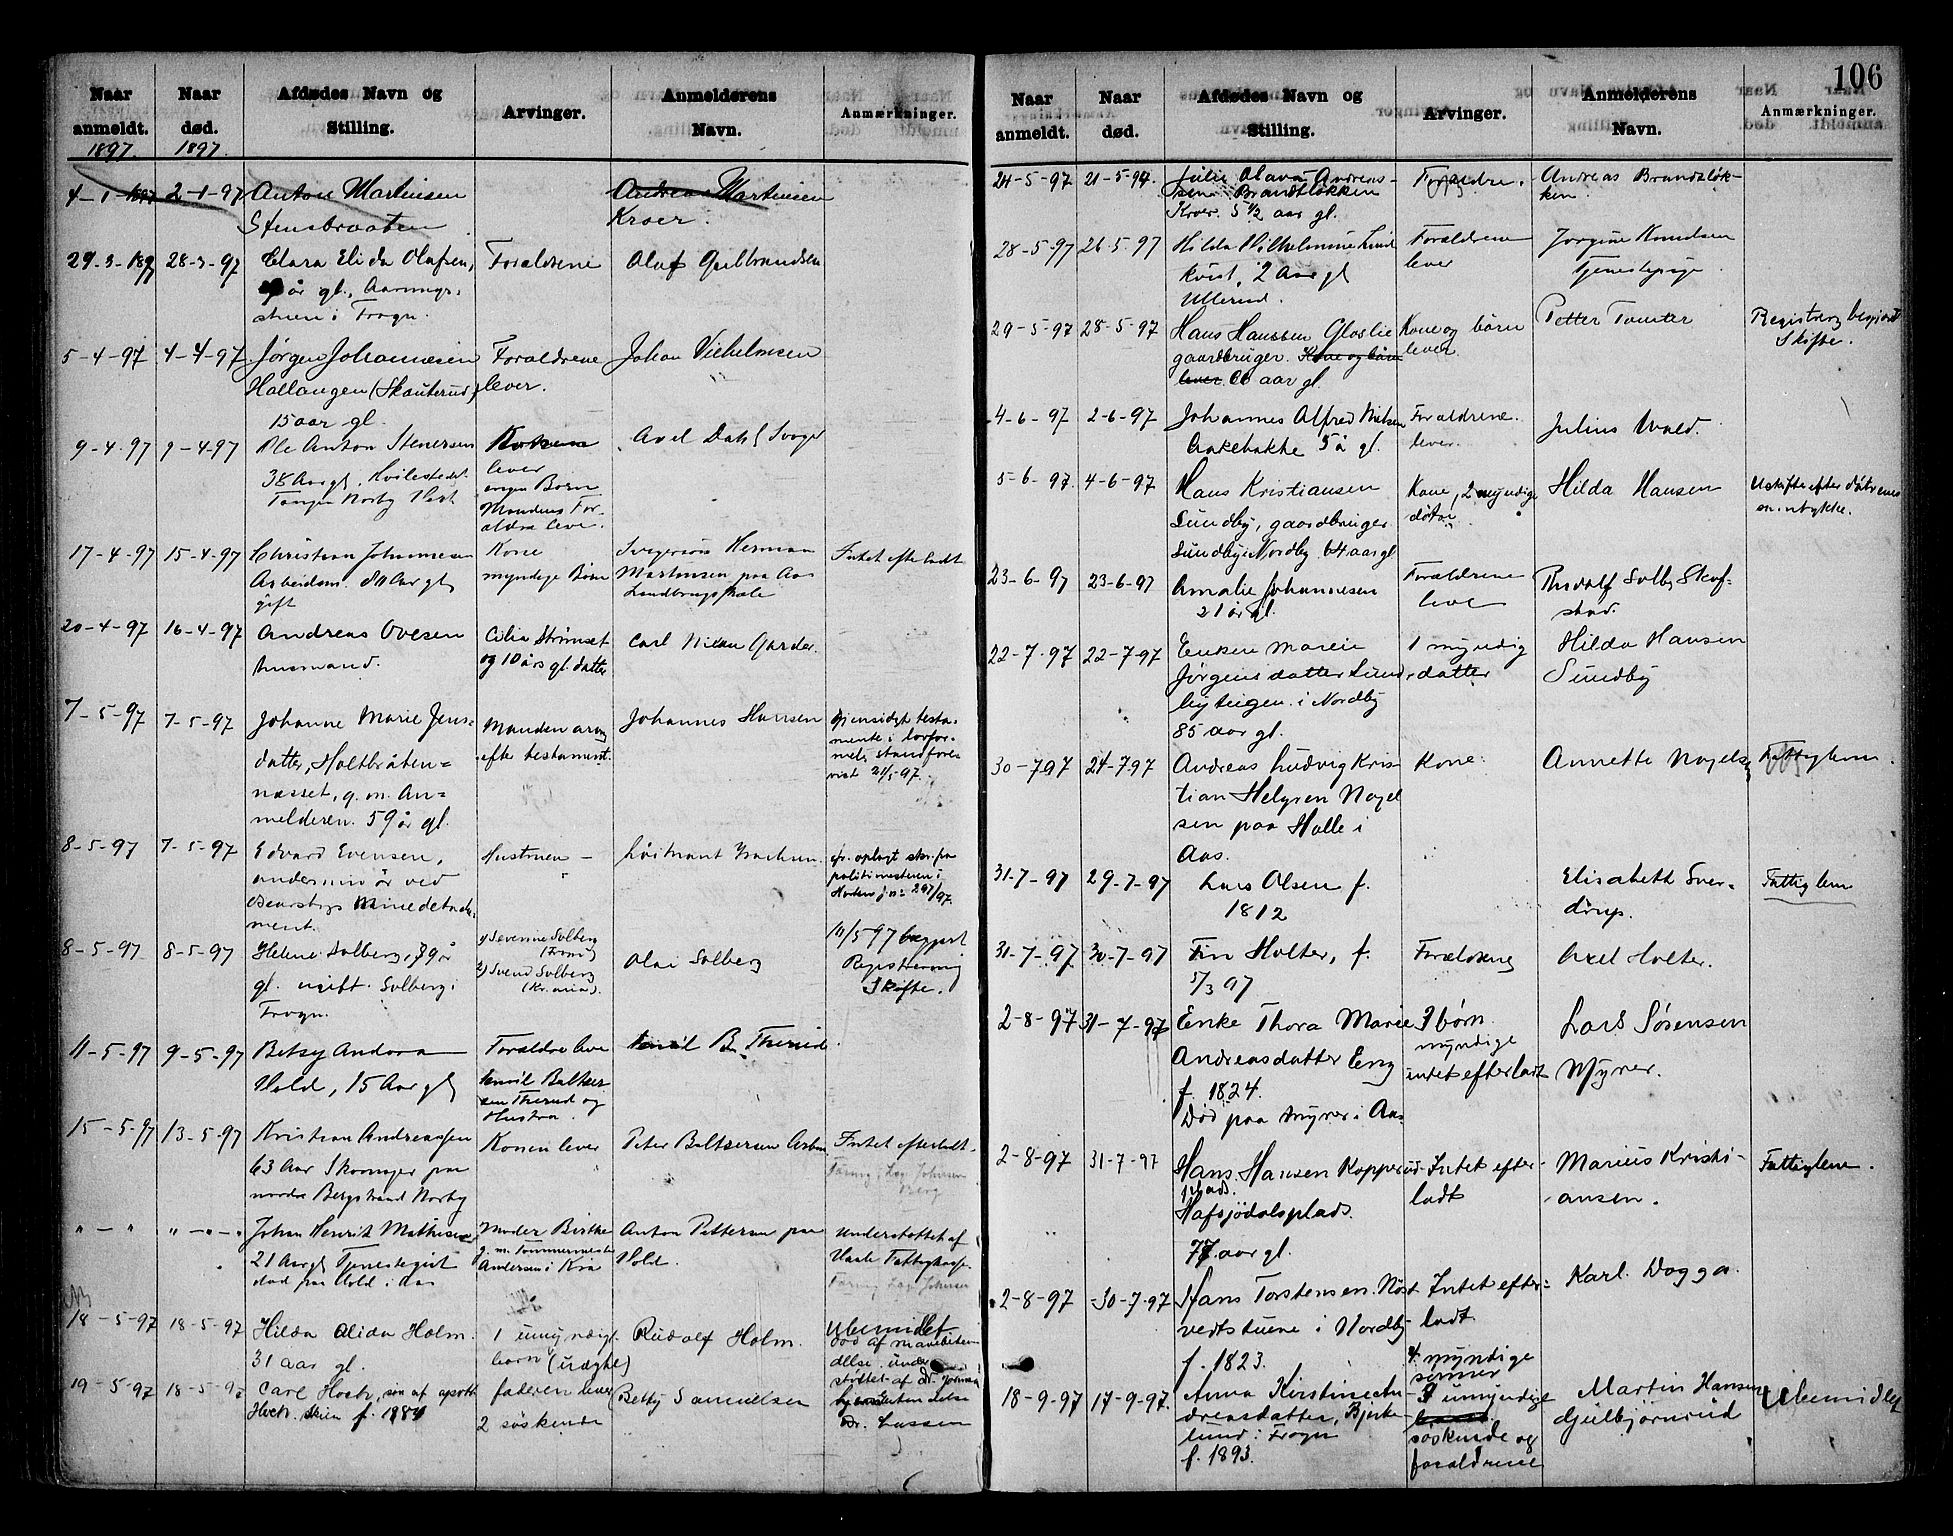 Naar anmeldt. Naar død. Afdødes Navn og Stilling. Arvinger. Anmelderens Navn. Anmærkninger.
1897. 1897.
4-1-1897 2-1-97 Anton Martinsen Andreas Martinsen
Stensbraaten Kroer.
29-3-1897 28-3-97 Clara Elida Olafsen, Forældrene Oluf Gulbrandsen
år gl., Aarungs-
stuen i Frogn.
5-4-97 4-4-97 Jørgen Johannesen Forældrene Johan Vilhelmsen
Hallangen (Skauterud) lever.
15 aar gl.
9-4-97 9-4-97 Ole Anton Stenersen Konen Axel Dahl Svoger
38 Aar gl. Hvilestedet lever
Tangen Norby ingen Børn
Mandens For-
ældre leve.
17-4-97 15-4-97 Christian Johannesen Kone Svigersøn Herman Intet efterladt
Arbeidsm. Aar gl. myndige Børn Martinsen paa Aas
gift Landbrugsskole
20-4-97 16-4-97 Andreas Ovesen Cilia Strømset Carl Nilsen Garder.
Huusmand. og 10 års gl. datter
7-5-97 7-5-97 Johanne Marie Jens- Manden arving Johannes Hansen Gjensidigt testa-
datter, Holtbråten- efter testament. mente i lovfor-
næsset, g. m. An- melig stand fore-
melderen. 59 år gl. vist 21/5-97.
8-5-97 7-5-97 Edvard Evensen, Hustruen - Løitnant oplagt skr. fra
underminør ved politimesteren i
Minedetache- Horten j. n: 297/97.
ment.
8-5-97 8-5-97 Helene Solberg, 79 år 1) Severine Solberg Olai Solberg 11/5 97 begjært
gl. ugift. Solberg i (Frogn) Registrering
Frogn. 2) Svend Solberg Skifte.
(Kr.ania).
11-5-97 9-5-97 Betsy Andora Forældre leve Emil B. Therud
Hold, 15 Aar gl Emil Baltser-
sen Therud og
Hustru.
15-5-97 13-5-97 Kristian Andreassen Konen lever Peter Baltsersen Intet efterladt.
63 Aar Skomager paa
nordre Bergstrand Norby
" - " " - " - " Johan Henrik Mathisen Moder Birthe Anton Pettersen paa Understøttet af
21 Aar gl Tjenestegut g. m. Tømmermester Hold. Fattigkasse
død paa Hold i Aas Andersen i Kra
18-5-97 18-5-97 Hilda Alida Holm. 1 umyndigt Rudolf Holm. Ubemidlet
31 aar gl. barn (uægte) død af
under
19-5-97 18-5-97 Carl Hoch, søn af faderen lever Betty Samuelsen støttet af
Hoch. Skien f. 1884 2 søskende
Dr. Lassen
106
Naar anmeldt. Naar død. Afdødes Navn og Stilling. Arvinger. Anmelderens Navn. Anmærkninger.
24-5-97 21-5-97. Julie Olava Andreas- Forældre. Andreas Brandsløk-
sen Brandsløkken ken.
Kroer. 5 1/2 aar gl.
28-5-97 26-5-97 Hilda Vilhelmine Lind Forældrene Jørgine Knudsen
kvist, 2 Aar gl lever Tjenestepige
Ullerud.
29-5-97 28-5-97 Hans Hanssen Gloslie Kone og børn Petter Tomter Registrering begjært
gaardbruger. Kone og børn lever. Skifte.
lever. 66 aar gl.
4-6-97 2-6-97 Johannes Alfred Nilsen Forældrene. Julius Wald.
Askebakke 5 å gl. lever.
5-6-97 4-6-97 Hans Kristiansen Kone, 2 myndige Hilda Hansen Uskifte efter døtrenes
Sundby, gaardbruger døtre samtykke.
Sundby i Nordby 64 aar gl
23-6-97 23-6-97 Amalie Johannesen Forældrene Rudolf Solby
21 år gl. leve stad.
22-7-97 22-7-97 Enken Maren 1 myndig Hilda Hansen
Jørgensdatter Sund- datter Sundby
byeiegen. i Nordby
85 aar gl.
30-797 24-797 Andreas Ludvig Kris- Kone. Annette Nagelsen Fattiglem.
tian Helgren Nagel
sen paa Holle i
Aas.
31-7-97 29-7-97 Lars Olsen f. Elisabeth Sver- Fattiglem
1812 drup.
31-7-97 30-7-97 Fin Holter, f. Forældrene Axel Holter.
5/3 97
2-8-97 31-7-97 Enke Thora Marie 3 børn Lars Sørensen
Andreasdatter Eng myndige Myrer.
f. 1824. intet efterladt
Død paa Myrer i Aas
2-8-97 31-7-97 Hans Hansen Kopperud- Intet efter- Marius Kristi- Fattiglem.
plads. ladt ansen.
Hafsjødalsplads.
77 aar gl.
2-8-97 30-7-97 Hans Torstensen Næst Intet efter- Karl Dogga.
vedtstuene i Nordby ladt
f. 1823.
18-9-97 17-9-97. Anna Kirstine An- 4 myndige Martin Hansen Ubemidlet
dreasdatter, Bjerke- sønner Gulbjørnrud
lund i Frogn 3 umyndige
f. 1893. søskende og
forældrene